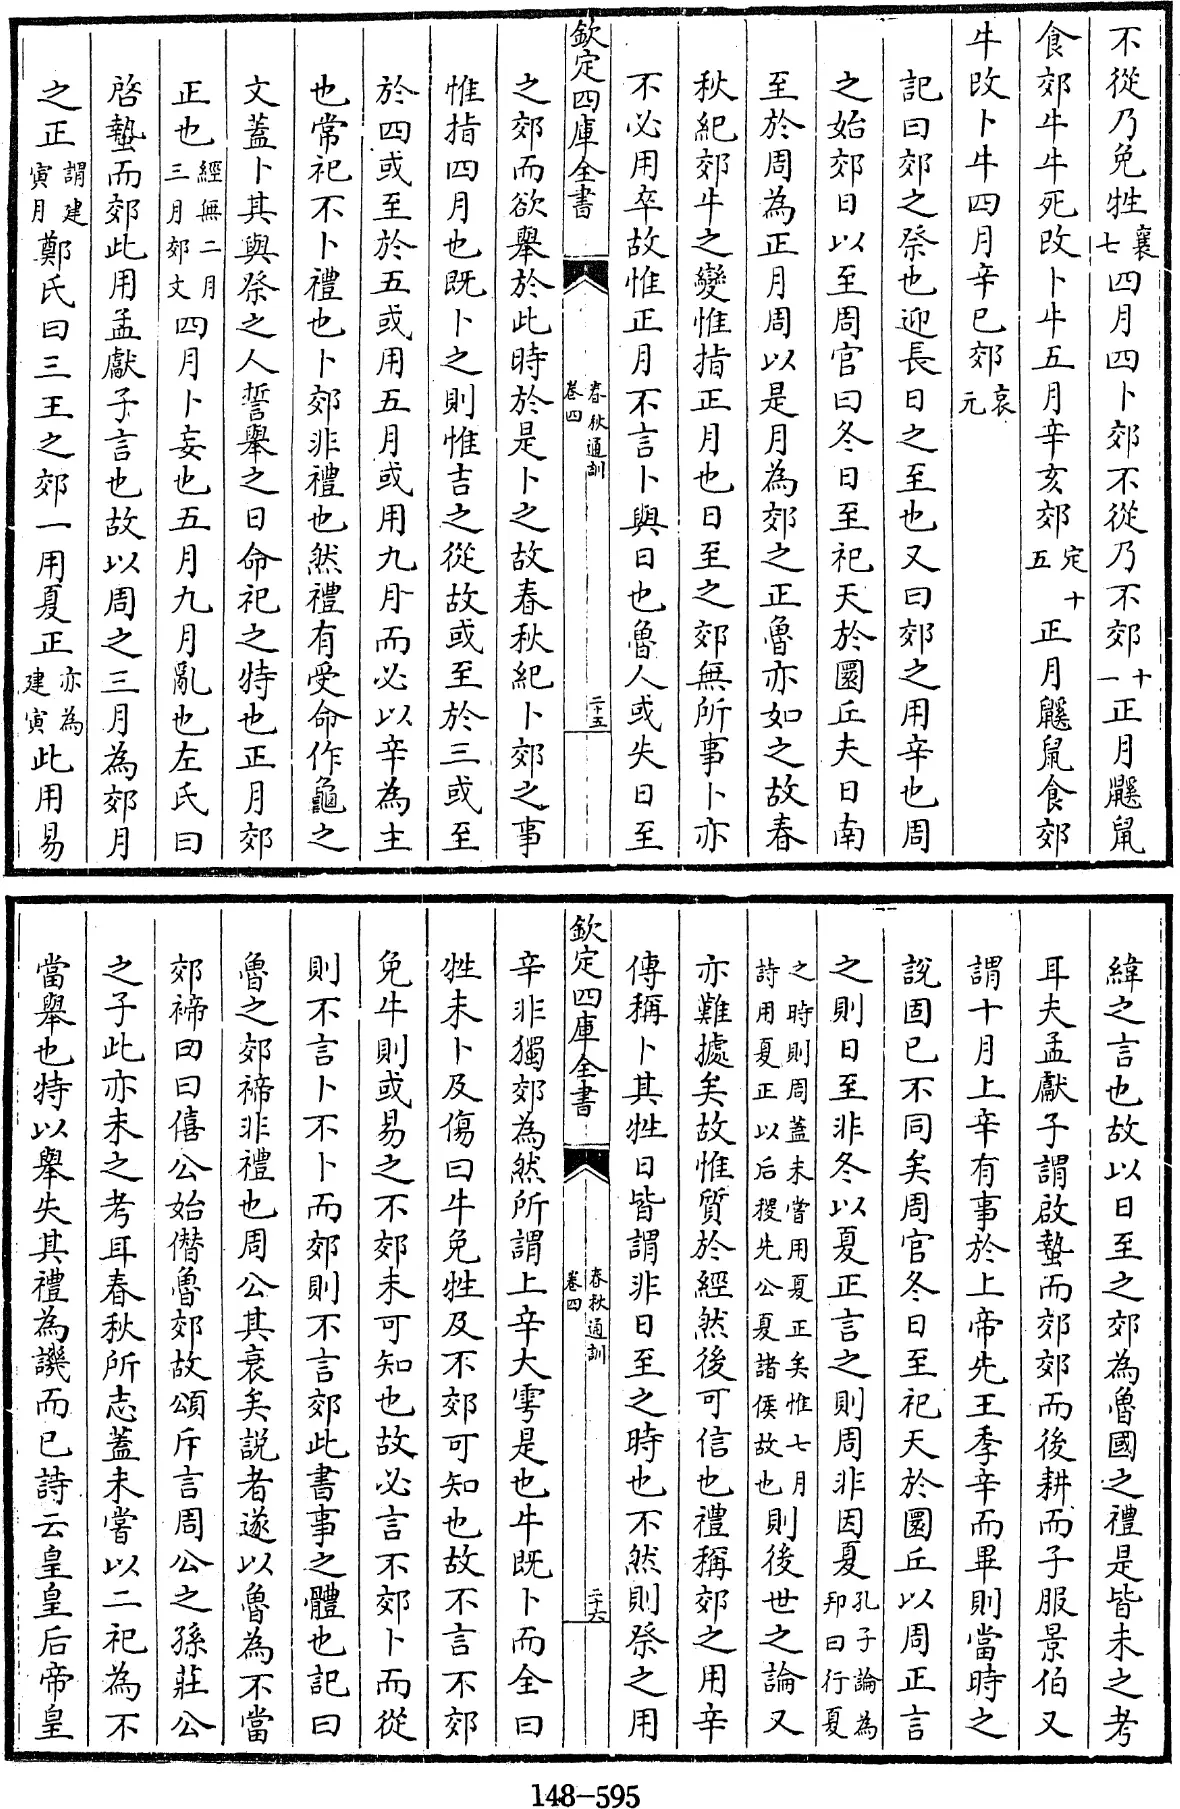 不從乃免牲襄七四月四卜郊不從乃不郊十一正月鼷鼠
食郊牛牛死改卜牛五月辛亥郊定十五正月鼷鼠食郊
牛改卜牛四月辛巳郊哀元
記曰郊之祭也迎長日之至也又曰郊之用辛也周
之始郊日以至周官曰冬日至祀天於圜丘夫日南
至於周為正月周以是月為郊之正魯亦如之故春
秋紀郊牛之變惟指正月也日至之郊無所事卜亦
不必用卒故惟正月不言卜與日也魯人或失日至
欽定四庫全書 春秋通訓卷四 二十五
之郊而欲舉於此時於是卜之故春秋紀卜郊之事
惟指四月也既卜之則惟吉之從故或至於三或至
於四或至於五或用五月或用九月而必以辛為主
也常祀不卜禮也卜郊非禮也然禮有受命作龜之
文蓋卜其與祭之人誓舉之日命祀之特也正月郊
正也經無二月三月郊文四月卜妄也五月九月亂也左氏曰
啓蟄而郊此用孟獻子言也故以周之三月為郊月
之正謂建寅月鄭氏曰三王之郊一用夏正亦為建寅此用易
緯之言也故以日至之郊為魯國之禮是皆未之考
耳夫孟獻子謂啟蟄而郊郊而後耕而子服景伯又
謂十月上辛有事於上帝先王季辛而畢則當時之
說固已不同矣周官冬日至祀天於圜丘以周正言
之則日至非冬以夏正言之則周非因夏孔子論為邦曰行夏
之時則周蓋未嘗用夏正矣惟七月詩用夏正以后稷先公夏諸侯故也則後世之論又
亦難據矣故惟質於經然後可信也禮稱郊之用辛
傳稱卜其牲日皆謂非日至之時也不然則祭之用
欽定四庫全書 春秋通訓卷四 二十六
辛非獨郊為然所謂上辛大雩是也牛既卜而全曰
牲未卜及傷曰牛免牲及不郊可知也故不言不郊
免牛則或易之不郊未可知也故必言不郊卜而從
則不言卜不卜而郊則不言郊此書事之體也記曰
魯之郊禘非禮也周公其衰矣説者遂以魯為不當
郊禘因曰僖公始僭魯郊故頌斥言周公之孫莊公
之子此亦未之考耳春秋所志蓋未嘗以二祀為不
當舉也特以舉失其禮為譏而已詩云皇皇后帝皇
148-595